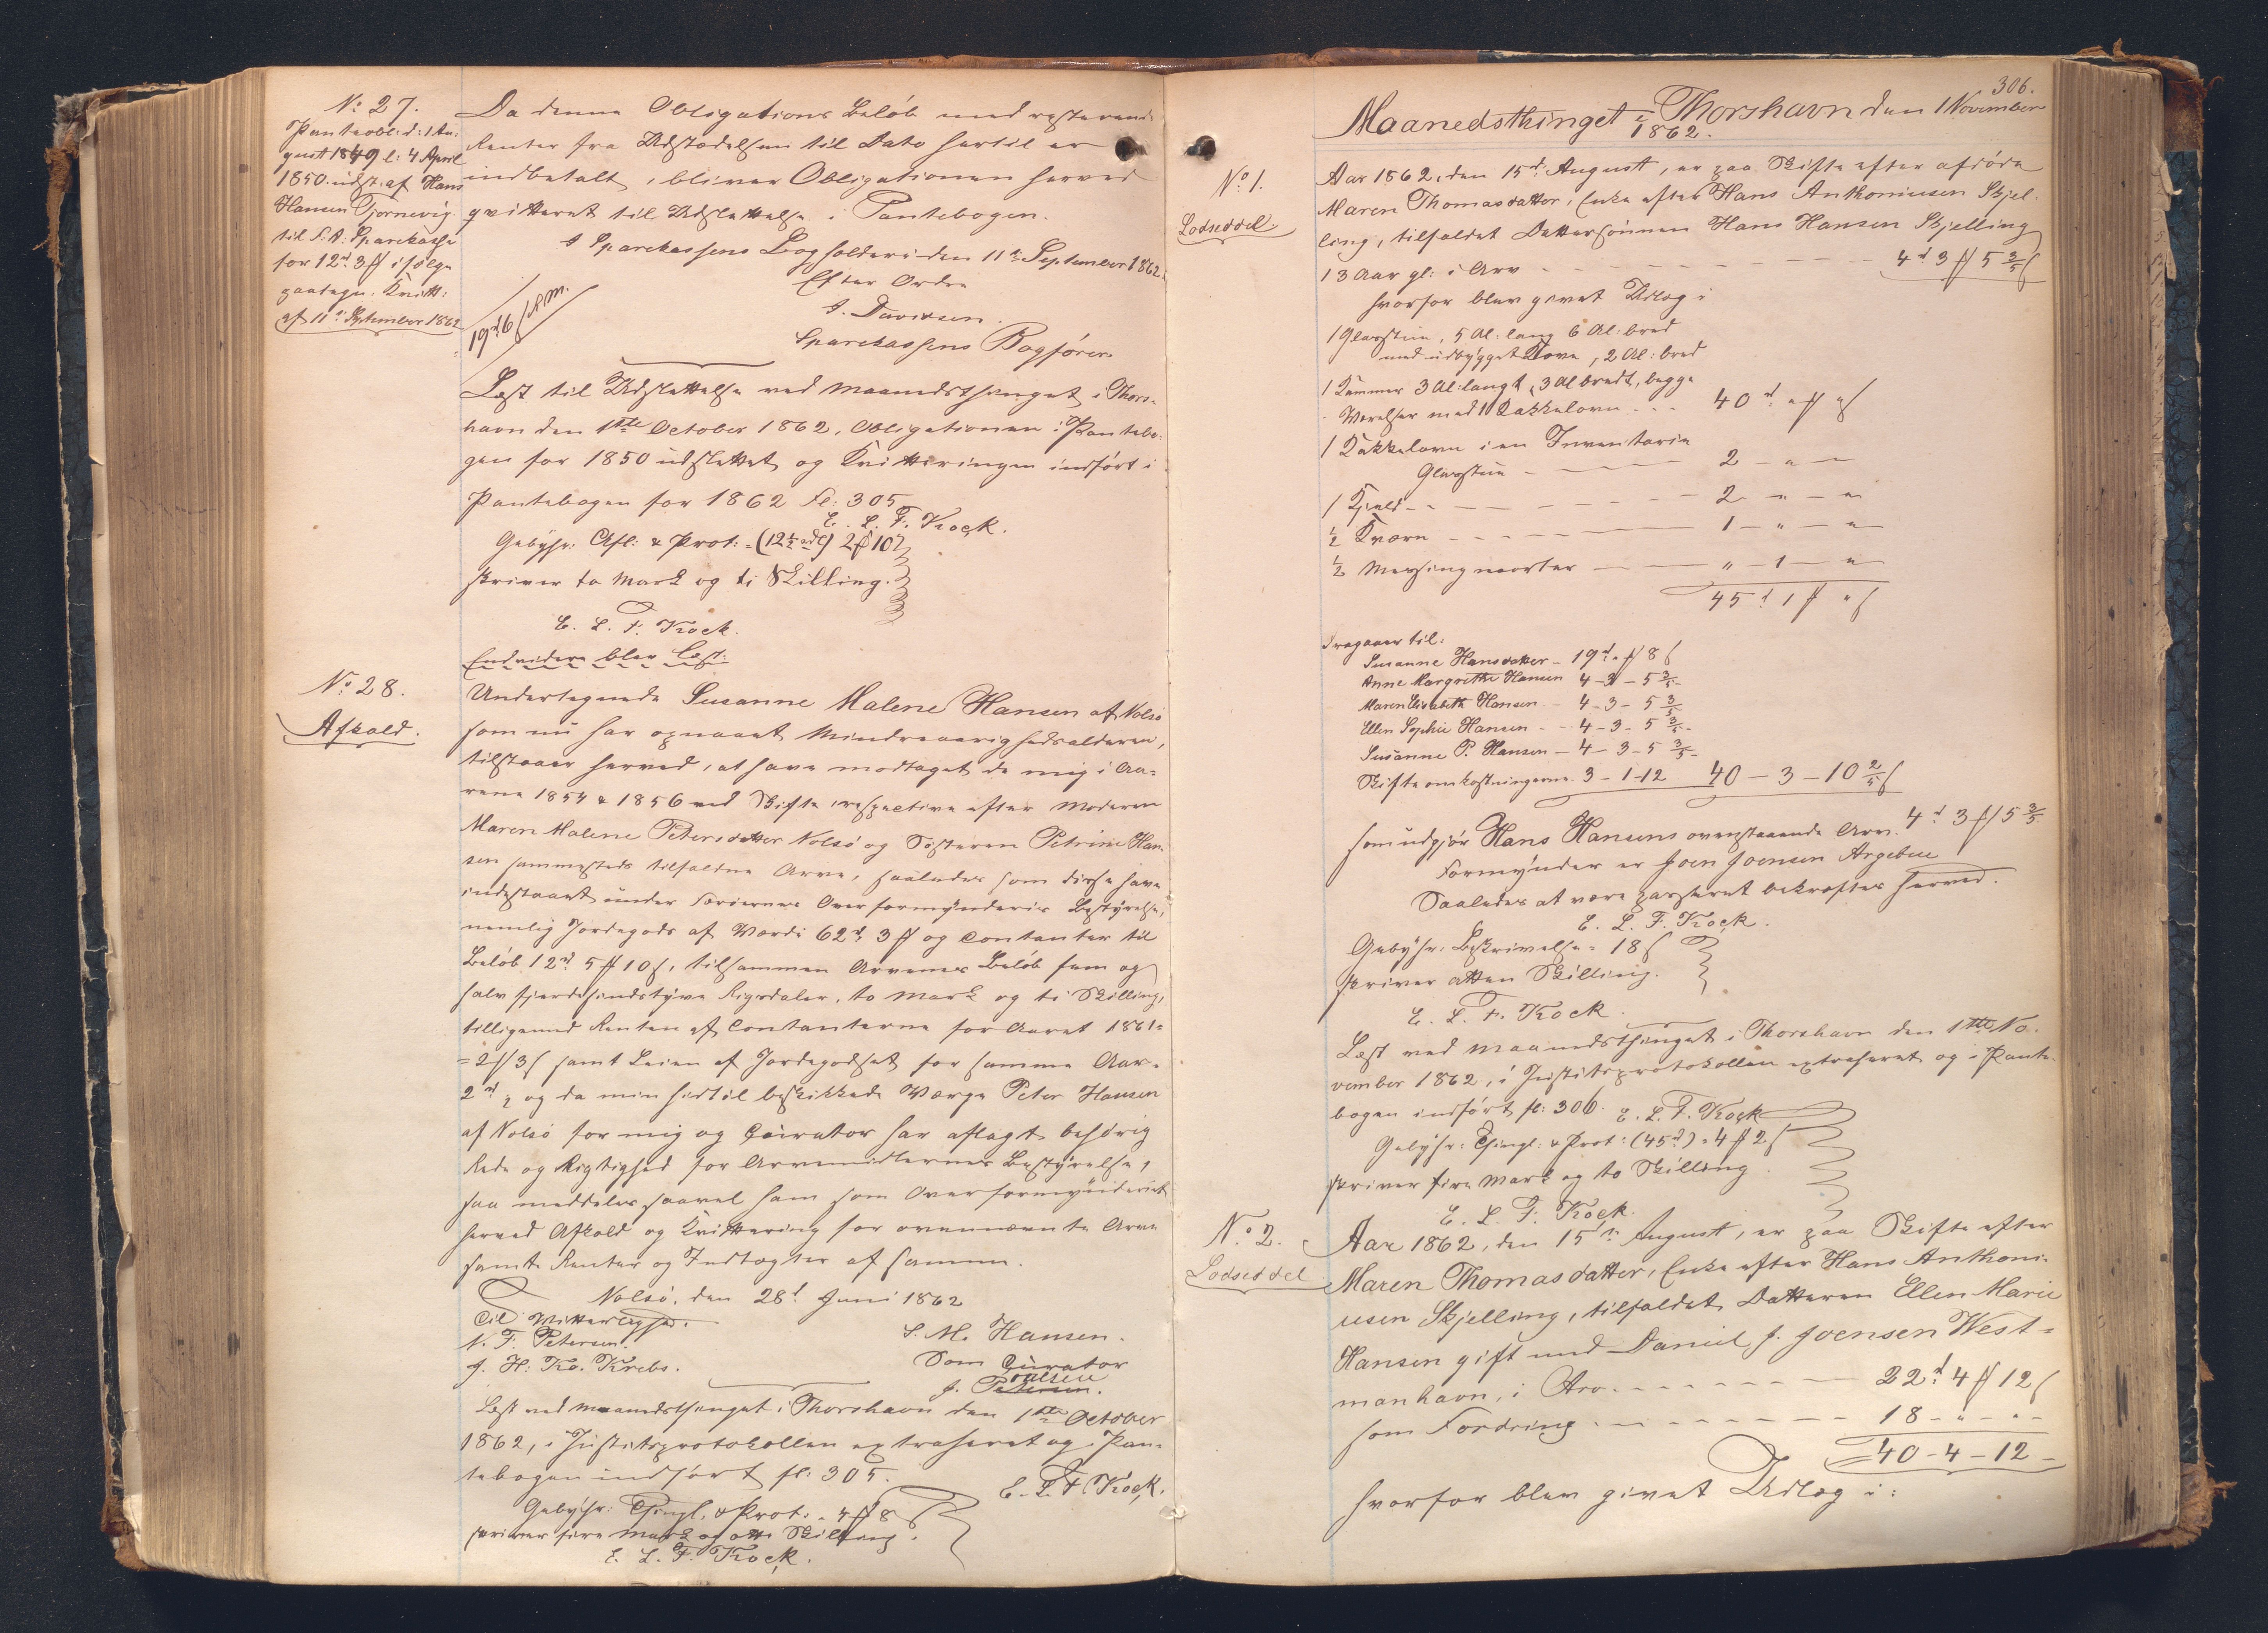 No 27.
Panteobl: d: 1 Au-
gust 1849 l: 4 April
1850 udst. af Hans
Hansen Tjornevig
til F. A. Sparekasse
for 12rd 3 # ifølge
paategn. Kvitt:
af 11te September 1862
Da denne Obligations Beløb med resterende
Renter fra Udstædelsen til Dato hertil er
indbetalt, bliver Obligationen herved
qvitteret til Udslettelse i Pantebogen.
I Sparekassens Bogholderi den 11te September 1862
Efter Ordre
J. Davidsen.
Sparekassens Bogfører
Læst til Udslettelse ved Maanedsthinget i Thors-
havn den 1ste October 1862, Obligationen i Pantebo-
gen for 1850 udslettet og Kvitteringen indført i
Pantebogen for 1862 Fl: 305
E. L. F. Kock.
Gebyhr: Afl: & Prot: = (12½ rdl) 2 # 10 s
skriver to Mark og ti Skilling.
E. L. F. Kock.
Endvidere blev læst:
No 28.
Afkald.
Undertegnede Susanne Malene Hansen af Nolsø
som nu har opnaaet Mindreaarighedsalderen,
tilstaaer herved, at have modtaget de mig i Aa-
rene 1854 & 1856 ved Skifte respective efter Moderen
Maren Malene Petersdatter Nolsø og Søsteren Petrine Han-
sen sammesteds tilfaldne Arve, saaledes som disse have
indestaaet under Færøernes Overformynderies Bestyrelse,
nemlig Jordegods af Værdi 62rd 3 # og Contanter til
Beløb 12rd 5 # 10 s, tilsammen Arvenes Beløb fem og
halvfjerdsindstyve Rigsdaler, to Mark og ti Skilling,
tilligemed Renten af Contanterne for Aaret 1861 =
= 2 # 3 s samt Leien af Jordegodset for samme Aar =
2rd, og da min hidtil beskikkede Værge Peter Hansen
af Nolsø for mig og Curator har aflagt behørig
Rede og Rigtighed for Arvemidlernes Bestyrelse,
saa meddeles saavel ham som Overformynderiet
herved Afkald og Kvittering for ovennævnte Arve
samt Renter og Indtægter af samme.
Nolsø, den 28d Juni 1862
Til Vitterlighed.
N. F. Petersen.
J. H. Ko. Krebs.
S. M. Hansen.
Som Curator
J. Petersen.
Læst ved Maanedsthinget i Thorshavn den 1ste October
1862, i Justitsprotokollen extraheret og i Pan-
tebogen indført fl: 305.
E. L. F. Kock.
Gebyhr: Thingl. & Prot: = 4 # 8 s
skriver fire Mark og otte Skilling.
E. L. F. Kock.
306.
Maanedsthinget i Thorshavn den 1 November
1862.
No 1.
Lodseddel
Aar 1862, den 15d August, er paa Skifte efter afdøde
Maren Thomasdatter, Enke efter Hans Anthoniusen Skjel-
ling, tilfaldet Dattersønnen Hans Hansen Skjelling
13 Aar gl: i Arv - - - 4d 3 # 5 3/5 s
hvorfor blev givet Udlæg i
1 Glarstue, 5 Al: lang 6 Al: bred
med udbygget Kove, 2 Al: bred
1 Kammer 3 Al: langt, 3 Al bredt, begge
Værelser med 1 Kakkelovn - - - 40d " # " s
1 Kakkelovn i en Inventarie
Glarstue - - - 2 - " - "
1 Kjeld - - - 2 - " - "
½ Kværn - - - 1 - " - "
½ Messingmorter - - - " - 1 - "
45d 1 # " s
fragaaer til:
Susanne Hansdatter - 19d " # 8 s
Anne Margrethe Hansen 4 - 3 - 5 3/5 -
Maren Elisabeth Hansen - 4 - 3 - 5 3/5
Ellen Sophie Hansen - - 4 - 3 - 5 3/5 -
Susanne P. Hansen - 4 - 3 - 5 3/5 -
Skifteomkostningerne 3 - 1 - 12 40 - 3 - 10 2/5 s
som udgjør Hans Hansens ovenstaaende Arv. 4d 3 # 5 3/5
Formynder er Joen Joensen Argeboe
Saaledes at være passeret bekræftes herved.
E. L. F. Kock.
Gebyhr: Beskrivelse = 18 s
skriver atten Skilling.
E. L. F. Kock.
Læst ved Maanedsthinget i Thorshavn den 1ste No-
vember 1862, i Justitsprotokollen extraheret og i Pante-
bogen indført fl: 306. E. L. F. Kock
Gebyhr: Thingl: & Prot: (45d) = 4 # 2 s
skriver fire Mark og to Skilling.
E. L. F. Kock.
No. 2.
Lodseddel
Aar 1862, den 15de August, er paa Skifte efter
Maren Thomasdatter, Enke efter Hans Anthoni-
usen Skjelling, tilfaldet Datteren Ellen Marie
Hansen gift med Daniel J. Joensen West-
manhavn, i Arv - - - 22d 4 # 12 s
som Fordring - - - 18 - " - " -
40 - 4 - 12 -
hvorfor blev givet Udlæg i: